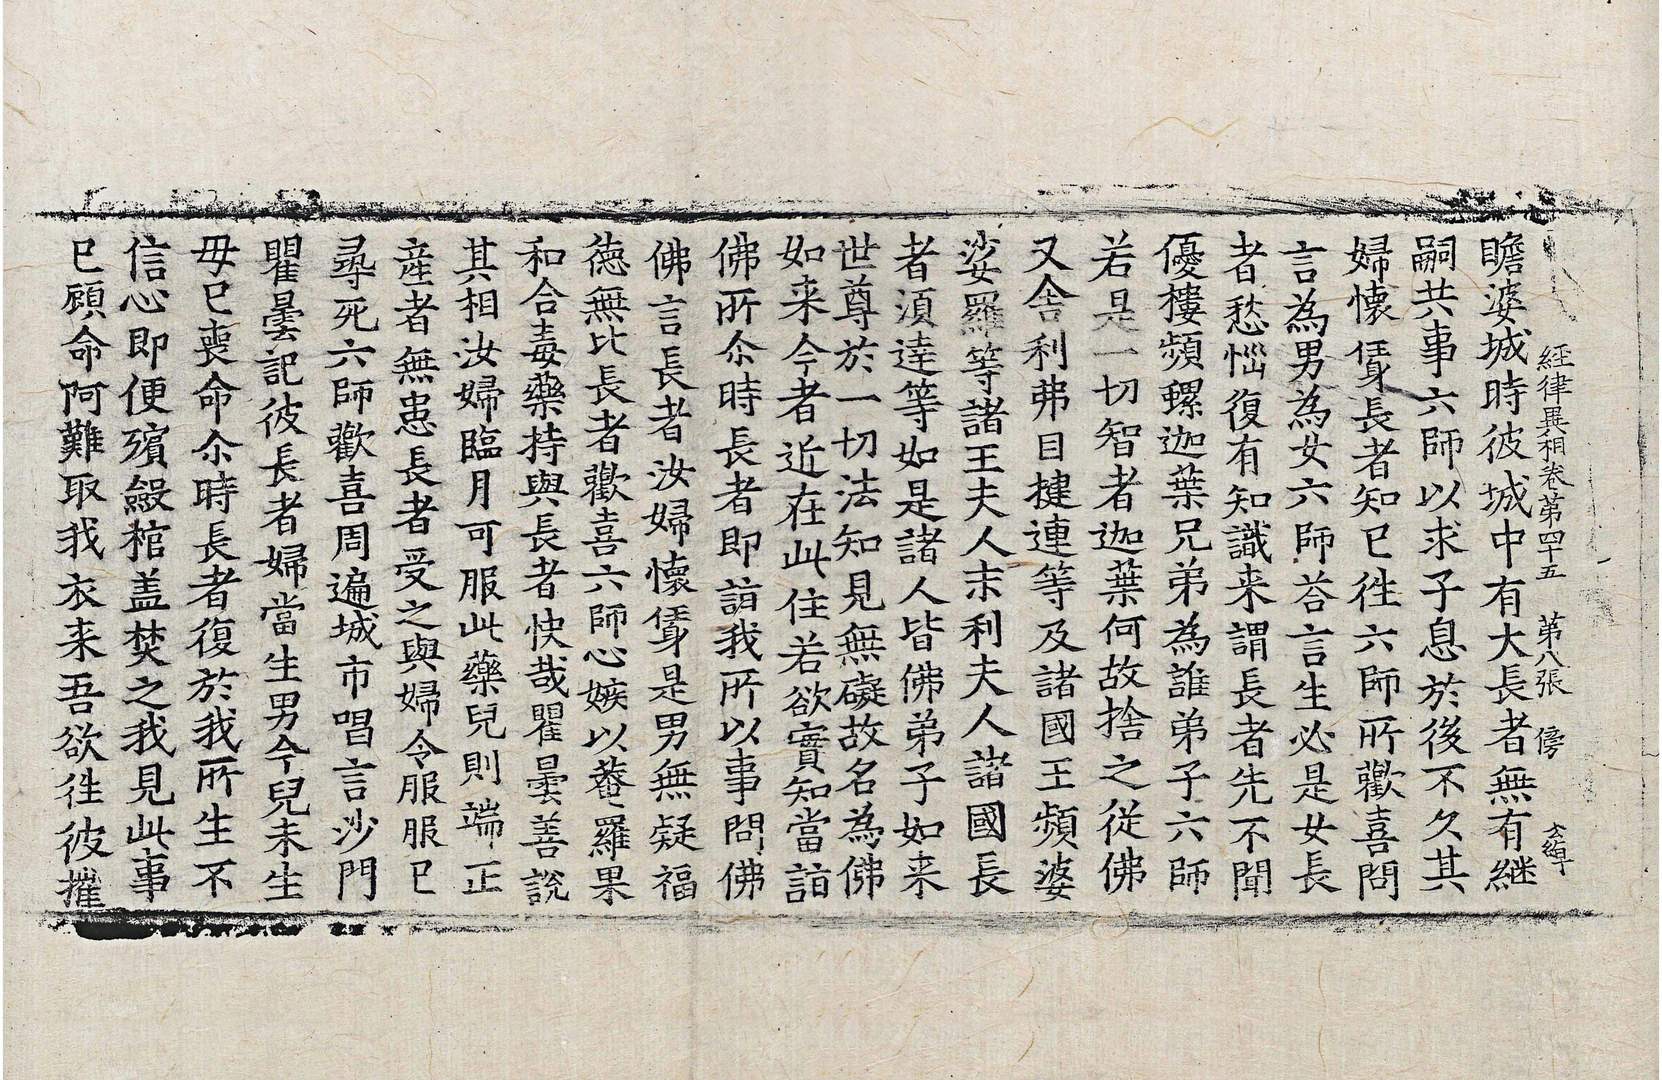 經律異相卷第四十五 第八張 傍
瞻婆城時彼城中有大長者無有継
嗣共事六師以求子息於後不久其
婦懷㑗長者知已徃六師所歡喜問
言為男為女六師荅言生必是女長
者愁惱復有知識来謂長者先不聞
優樓頻螺迦葉兄弟為誰弟子六師
若是一切智者迦葉何故捨之從佛
又舍利弗目揵連等及諸國王頻婆
娑羅等諸王夫人末利夫人諸國長
者湏達等如是諸人皆佛弟子如来
世尊於一切法知見無礙故名為佛
如来今者近在此住若欲實知當詣
佛所尒時長者即詣我所以事問佛
佛言長者汝婦懷㑗是男無疑福
德無比長者歡喜六師心嫉以菴羅果
和合毒藥持與長者快哉瞿曇善說
其相汝婦臨月可服此藥兒則端正
產者無患長者受之與婦令服服已
尋死六師歡喜周遍城市唱言沙門
瞿曇記彼長者婦當生男今兒未生
毋已喪命尒時長者復於我所生不
信心即便殯殮棺盖焚之我見此事
已顧命阿難取我衣来吾欲徃彼摧